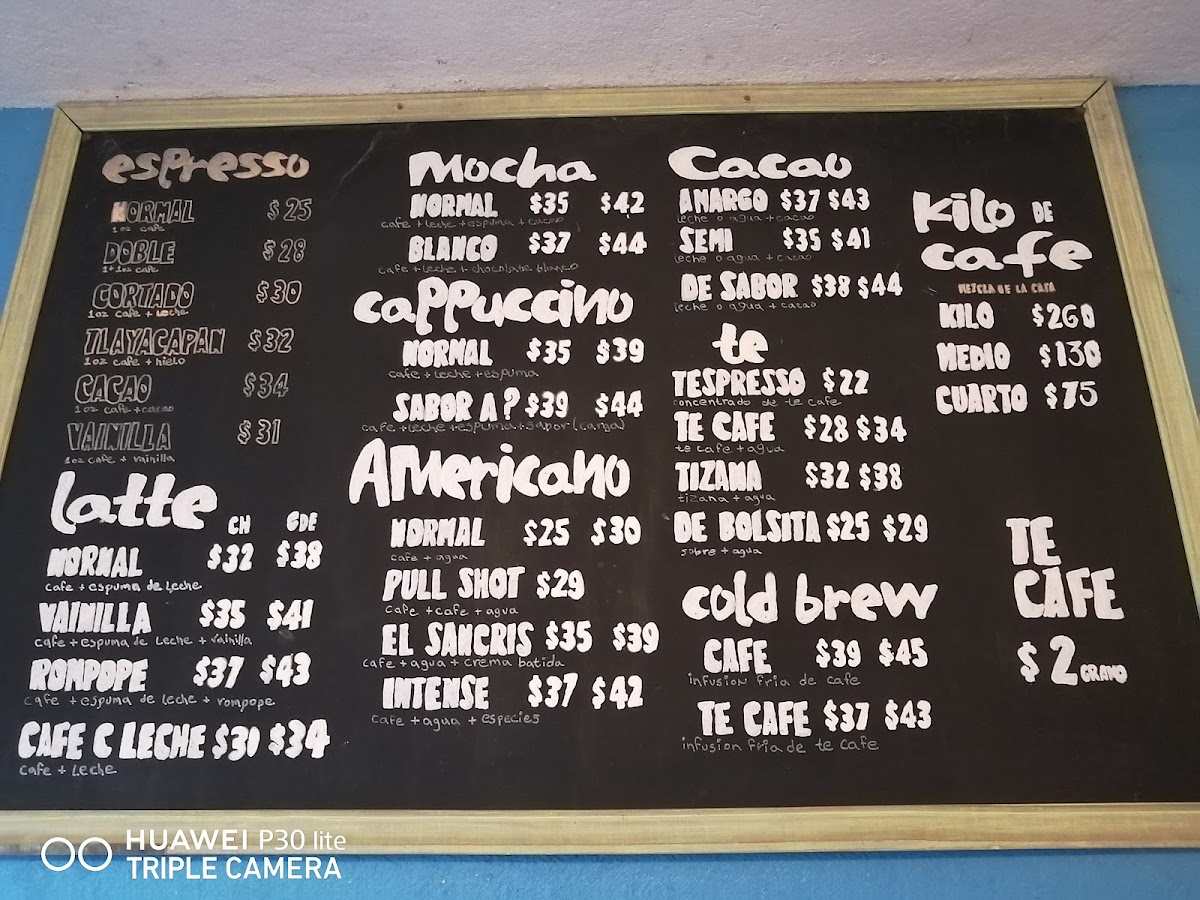 espresso
NORMAL $25
1oz cafe
DOBLE $28
1+1oz cafe
CORTADO $30
1oz cafe + leche
TLAYACAPAN $32
1oz cafe + hielo
CACAO $34
1oz cafe + cacao
VAINILLA $31
1oz cafe + vainilla
latte CH GDE
NORMAL $32 $38
cafe + espuma de leche
VAINILLA $35 $41
cafe + espuma de leche + vainilla
ROMPOPE $37 $43
cafe + espuma de leche + rompope
CAFE C LECHE $30 $34
cafe + leche
Mocha
NORMAL $35 $42
cafe + leche + espuma + cacao
BLANCO $37 $44
cafe + leche + chocolate blanco
cappuccino
NORMAL $35 $39
cafe + leche + espuma
SABOR A? $39 $44
cafe + leche + espuma + sabor (carga)
AMericano
NORMAL $25 $30
cafe + agua
PULL SHOT $29
cafe + cafe + agua
EL SANCRIS $35 $39
cafe + agua + crema batida
INTENSE $37 $42
cafe + agua + especies
Cacao
AMARGO $37 $43
leche o agua + cacao
SEMI $35 $41
leche o agua + cacao
DE SABOR $38 $44
leche o agua + cacao
te
TESPRESSO $22
concentrado de te cafe
TE CAFE $28 $34
te cafe + agua
TIZANA $32 $38
tizana + agua
DE BOLSITA $25 $29
sobre + agua
cold brew
CAFE $39 $45
infusion fria de cafe
TE CAFE $37 $43
infusion fria de te cafe
Kilo DE
cafe
MEZCLA DE LA CASA
KILO $260
MEDIO $130
CUARTO $75
TE
CAFE
$2 GRAMO
HUAWEI P30 lite
TRIPLE CAMERA